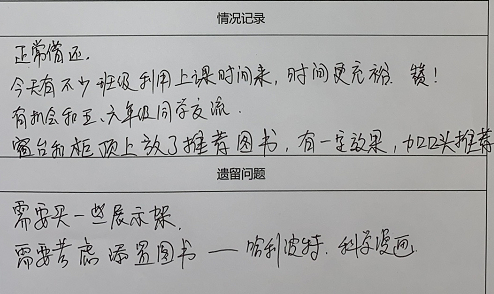 情况记录
正常借还.
今天有不少班级利用上课时间来,时间更充裕. 赞!
有机会和五、六年级同学交流.
窗台和柜顶上放了推荐图书,有一定效果,加口头推荐
遗留问题
需要买一些展示架.
需要考虑添置图书——哈利波特.科学漫画